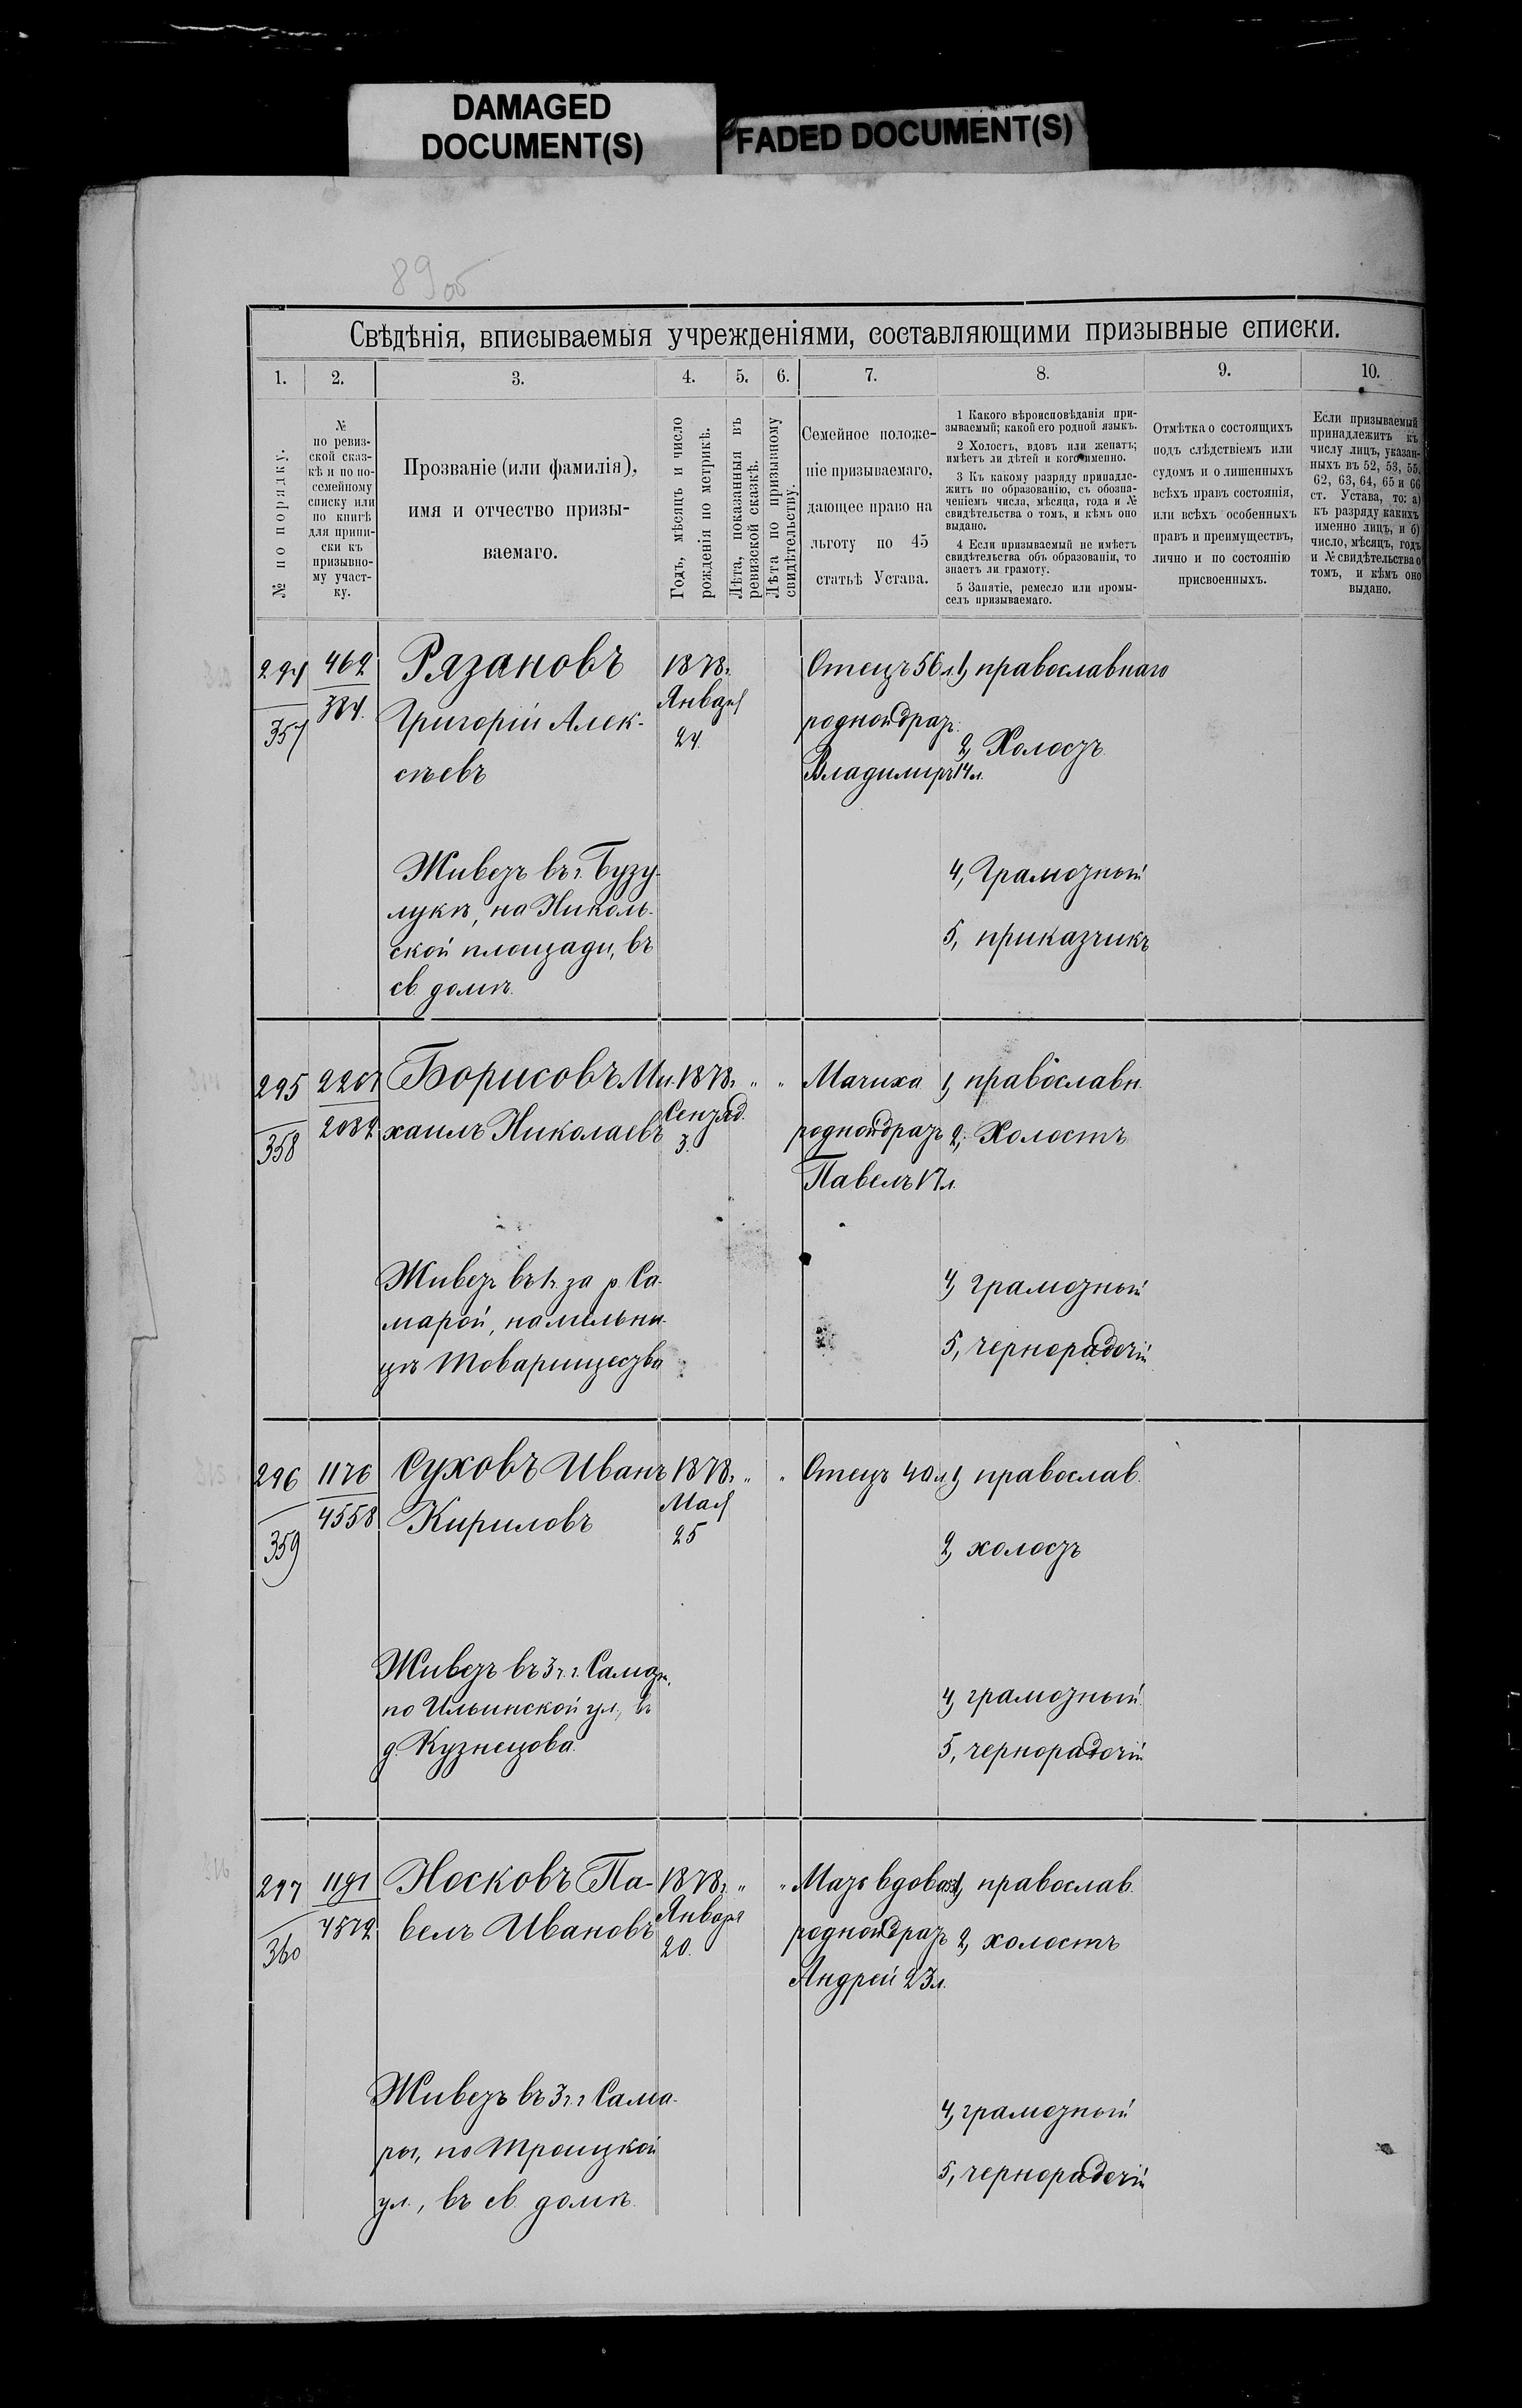 DAMAGED
DOCUMENT(S)
FADED DOCUMENT(S)
89об
Свѣдѣнія, вписываемыя учрежденіями, составляющими призывные списки.
1. 2. 3. 4. 5. 6. 7. 8. 9. 10.
№ по порядку.
№
по ревиз-
ской сказ-
кѣ и по по-
семейному
списку или
по книгѣ
для припи-
ски къ
призывно-
му участ-
ку.
Прозваніе (или фамилія),
имя и отчество призы-
ваемаго.
Годъ, мѣсяцъ и число
рожденія по метрикѣ.
Лѣта, показанныя въ
ревизской сказкѣ.
Лѣта по призывному
свидѣтельству.
Семейное положе-
ніе призываемаго,
дающее право на
льготу по 45
статьѣ Устава.
1 Какого вѣроисповѣданія при-
зываемый; какой его родной языкъ.
2 Холостъ, вдовъ или женатъ;
имѣетъ ли дѣтей и кого именно.
3 Къ какому разряду принадле-
житъ по образованію, съ обозна-
ченіемъ числа, мѣсяца, года и №
свидѣтельства о томъ, и кѣмъ оно
выдано.
4 Если призываемый не имѣетъ
свидѣтельства объ образованіи, то
знаетъ ли грамоту.
5 Занятіе, ремесло или промы-
селъ призываемаго.
Отмѣтка о состоящихъ
подъ слѣдствіемъ или
судомъ и о лишенныхъ
всѣхъ правъ состоянія,
или всѣхъ особенныхъ
правъ и преимуществъ,
лично и по состоянію
присвоенныхъ.
Если призываемый
принадлежитъ къ
числу лицъ, указан-
ныхъ въ 52, 53, 55,
62, 63, 64, 65 и 66
ст. Устава, то: а)
къ разряду какихъ
именно лицъ, и б)
число, мѣсяцъ, годъ
и № свидѣтельства о
томъ, и кѣмъ оно
выдано.
294
357
462
384.
Рязановъ
Григорій Алек-
сѣевъ
Живетъ въ г. Бузу-
лукѣ, на Николь-
ской площади, въ
св. домѣ.
1878г.
Января
24.
Отецъ 56 л.
родной братъ
Владимиръ 14 л.
1, православнаго
2, Холостъ
4, Грамотный
5, приказчикъ
295
358
2201
2082
Борисовъ Ми-
хаилъ Николаевъ
Живетъ въ 1ч. за р. Са-
марой, на мельни-
цѣ Товарищества
1878г. " "
Сентяб.
3.
Мачиха
родной братъ
Павелъ 17 л.
1, православн.
2, Холостъ
4, грамотный
5, чернорабочій
296
359
1176
4558
Суховъ Иванъ
Кириловъ
Живетъ въ 3 ч. г. Самары,
по Ильинской ул., въ
д. Кузнецова.
1878г. " "
Мая
25
Отецъ 40 л.
1, православ.
2, холостъ
4, грамотный
5, чернорабочій
297
360
1191
4572
Носковъ Па-
велъ Ивановъ
Живетъ въ 3 ч. г. Сама-
ры, по Троицкой
ул., въ св. домѣ.
1878г. " "
Января
20.
Мать вдова
родной братъ
Андрей 23 л.
1, православ.
2, холостъ
4, грамотный
5, чернорабочій